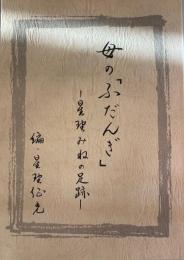 母の「ふだんぎ」
―星野みねの足跡―
編 星野征光